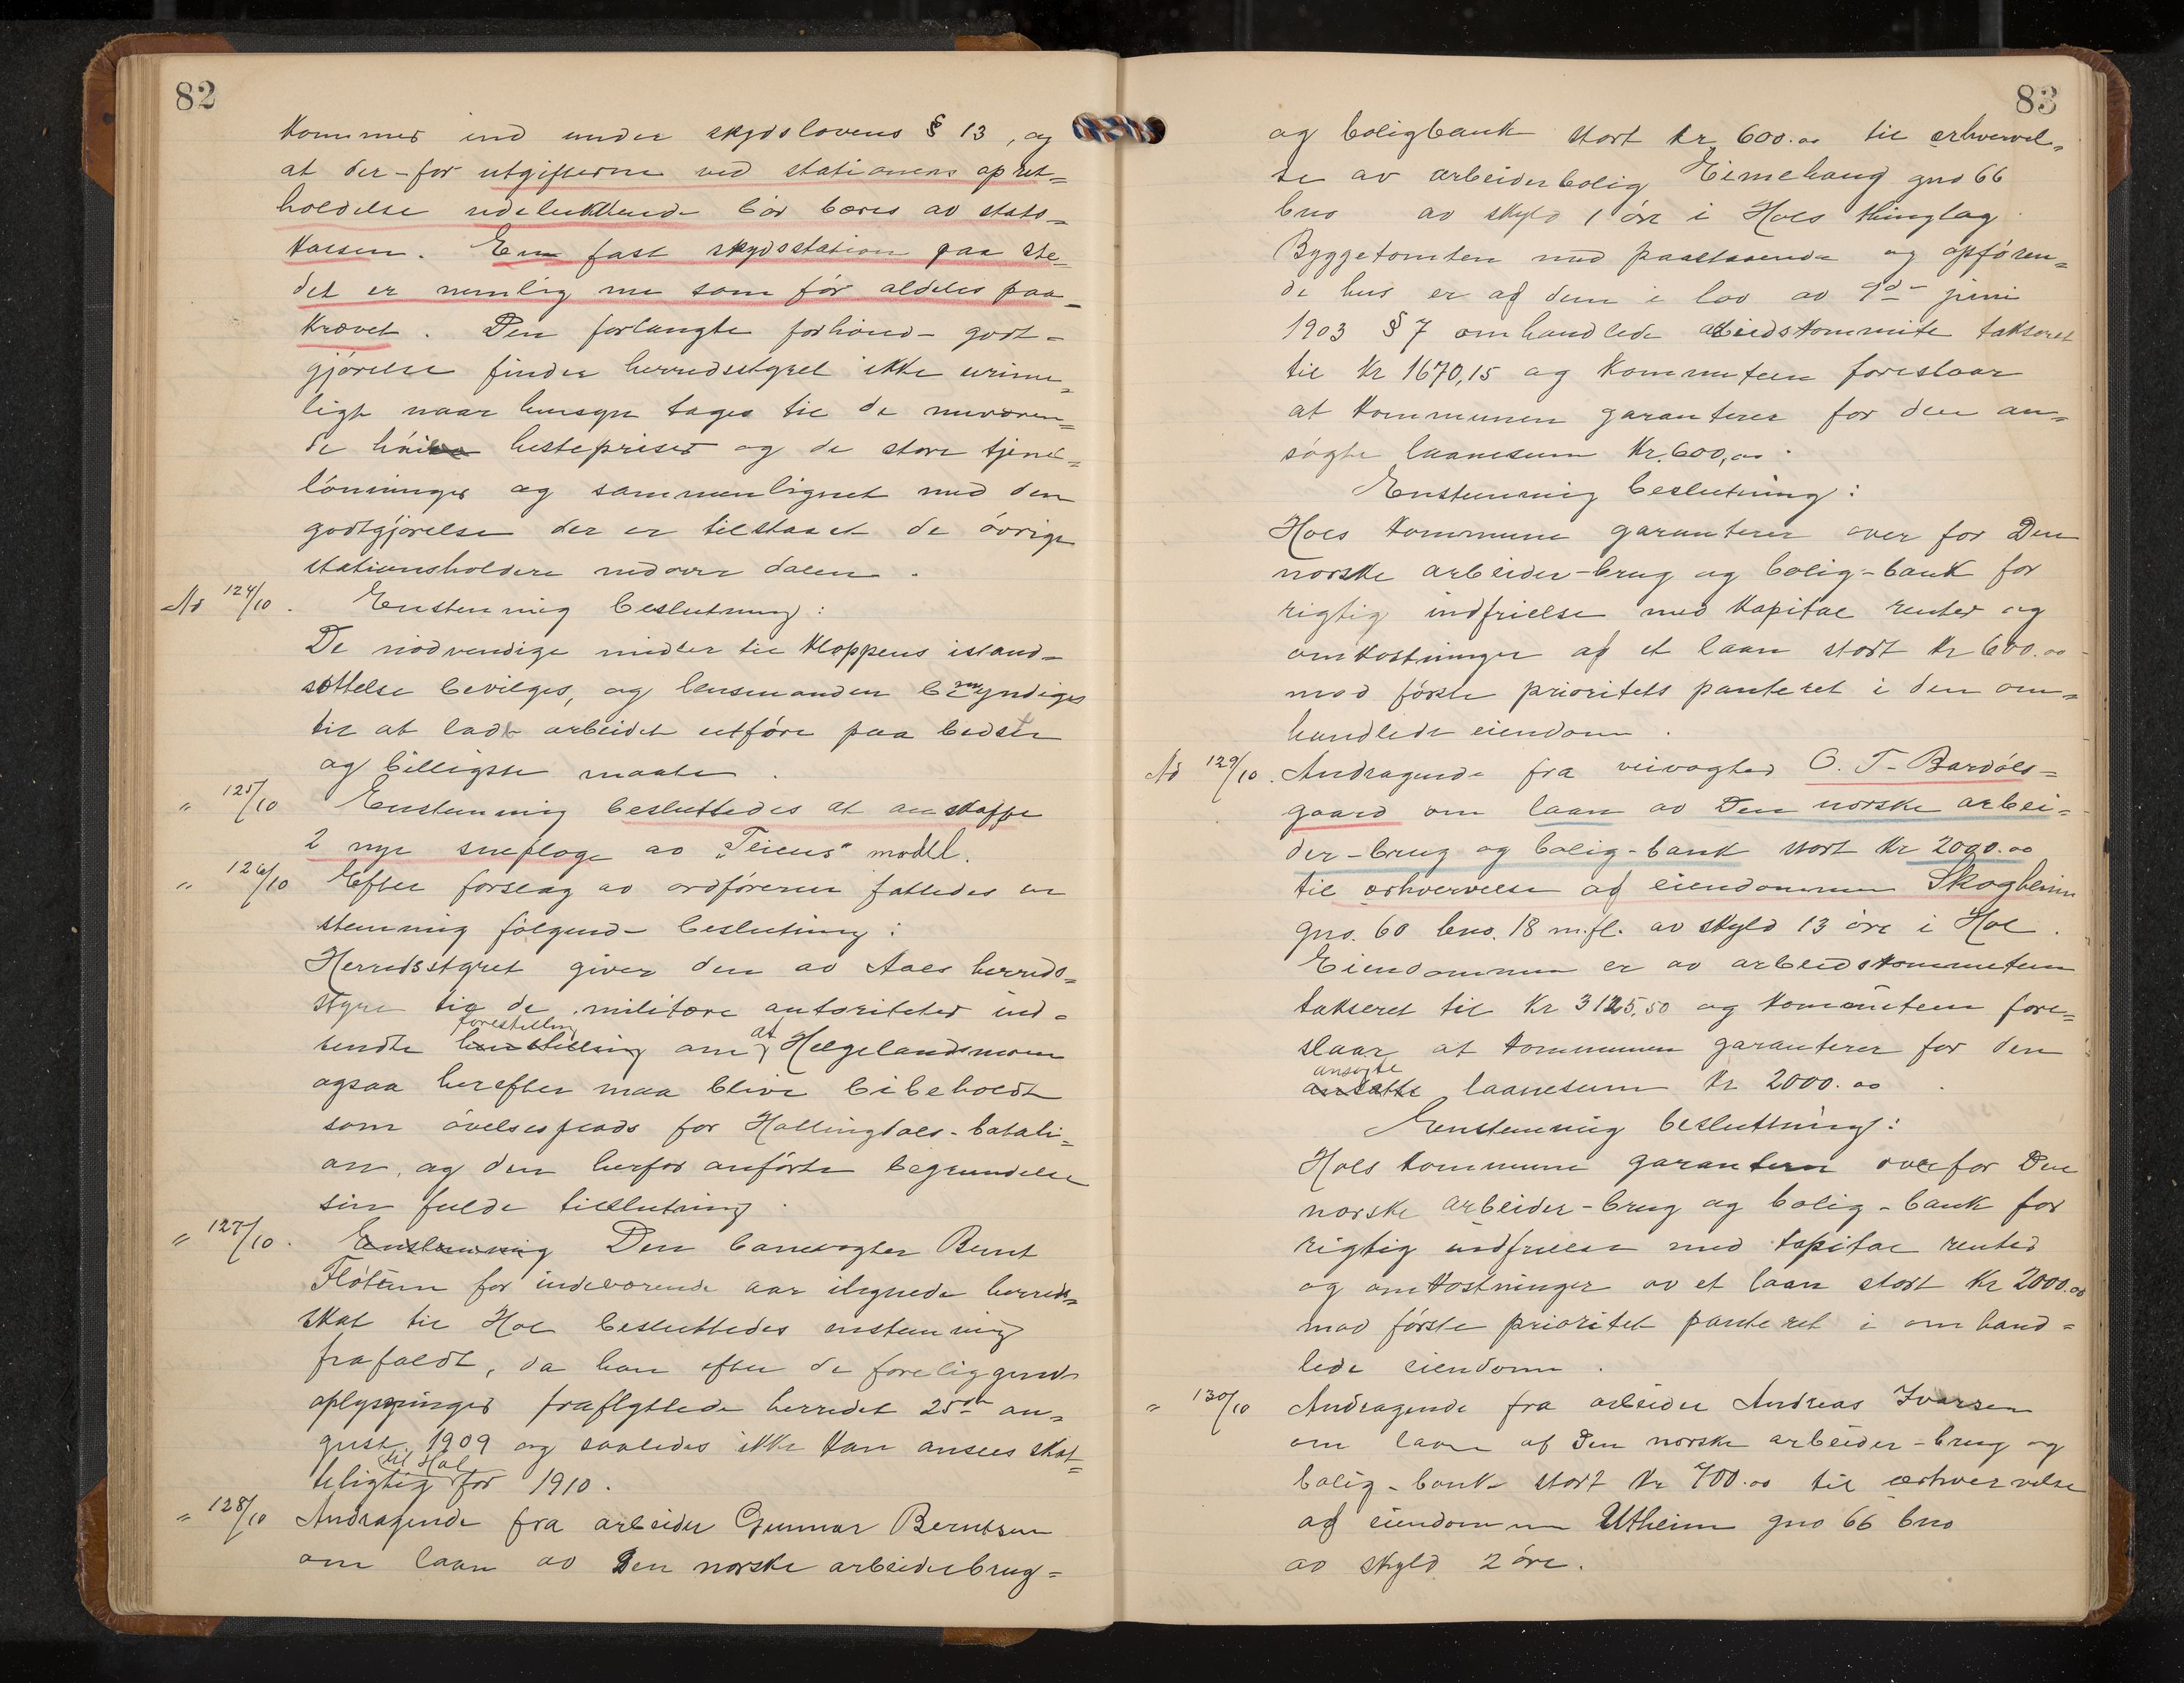 82
kommer ind under skydslovens § 13, og
at der-for utgifterne ved stationens opret=
holdelse udelukkende bør bæres av stats=
kassen. En fast skydsstation paa ste=
det er nemlig nu som før aldeles paa=
krævet. Den forlangte forhøied- godt=
gjørelse finder herredsstyret ikke urime=
ligt naar hensyn tages til de nuværen=
de høie hestepriser og de store tjener=
lønninger og sammenlignet med den
godtgjørelse der er tilstaaet de øvrige
stationsholdere nedover dalen.
Ad 124/10. Enstemmig beslutning:
De nødvendige midler til kloppens istand=
sættelse bevilges, og lensmanden bemyndiges
til at lade arbeidet utføre paa bedste
og billigste maate.
" 125/10 Enstemmig besluttedes at anskaffe
2 nye sneploge av "Teiens" modell.
" 126/10 Efter forslag av ordføreren fattedes en
stemmig følgend- beslutning:
Herredsstyret giver den av Aals herreds=
styre til de militære autoriteter ind=
sendte henstilling forestilling om at Helgelandsmoen
ogsaa herefter maa blive bibeholdt
som øvelsesplads for Hallingdals-batali=
on, og den herfor anførte begrundelse
sin fulde tilslutning.
" 127/10. Enstemmig Den banevogter Bernt
Fløtum for indeværende aar ilignede herreds=
skat til Hol besluttedes enstemmig
frafaldt, da han efter de foreliggende
oplysninger fraflyttede herredet 25de au=
gust 1909 og saaledes ikke kan ansees skat=
tepligtig til Hol for 1910.
" 128/10 Andragende fra arbeider Gunnar Berntsen
om laan av Den norske arbeiderbrug=
83
og boligbank stort kr 600.00 til erhvervel=
se av arbeiderbolig Eimehaug gno 66
bno av skyld 1 øre i Hols thinglag.
Byggetomten med paastaaende og opføren=
de hus er af den i lov av 9de juni
1903 § 7 omhandlede arbeidskommite taksert
til kr 1670,15 og kommiteen foreslaar
at kommunen garanterer for den an=
søgte laanesum kr. 600,00.
Enstemmig beslutning:
Hols kommune garanterer over for Den
norske arbeider-brug og bolig-bank for
rigtig indfrielse med kapital renter og
omkostninger af et laan stort kr 600.00
mod første prioritets panteret i den om=
handlede eiendom.
Ad 129/10. Andragende fra veivogter O. T. Bardøls=
gaard om laan av Den norske arbei=
der-brug og bolig-bank stort kr 2000.00
til erhvervelse af eiendommen Skogheim
gno. 60 bno. 18 m.fl. av skyld 13 øre i Hol.
Eiendommen er av arbeidskommiteen
takseret til kr 3125,50 og komiteen fore=
slaar at kommunen garanterer for den
ansatte ansøgte laanesum kr 2000.00.
Enstemmig beslutning:
Hols kommune garanterer overfor Den
norske arbeider-brug og bolig-bank for
rigtig indfrielse med kapital renter
og omkostninger av et laan stort kr 2000.00
mod første prioritet panteret i omhand=
lede eiendom.
" 130/10 Andragende fra arbeider Andreas Ivarsen
om laan af Den norske arbeider-brug og
bolig-bank stort kr 700.00 til erhvervelse
af eiendommen Utheim gno 66 bno
av skyld 2 øre.